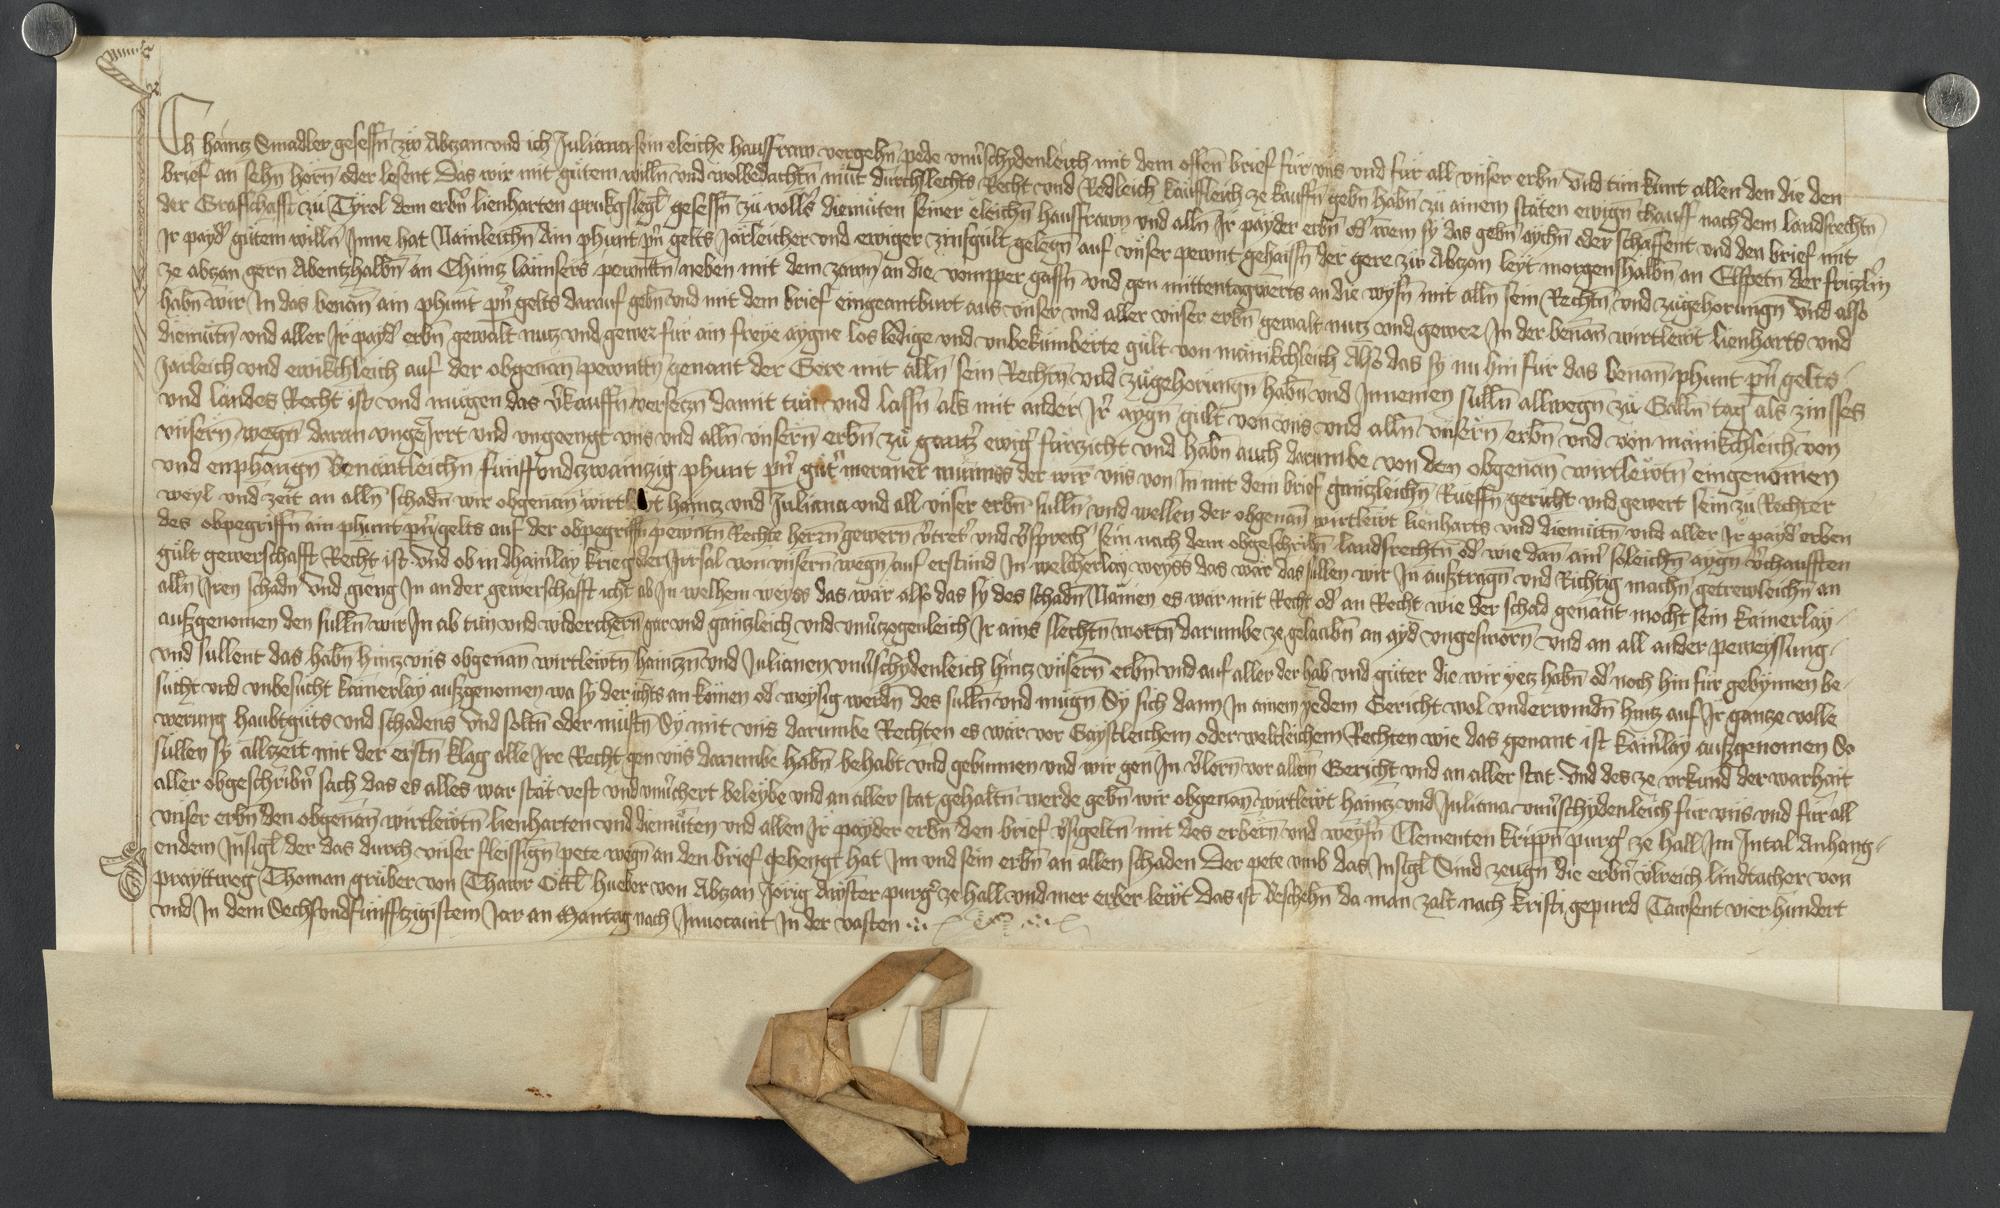 Ich haintz Smadler gesessn zw Abzan vnd ich Juliana sein eleiche hausfraw vergehn pede vnuerschydenleich mit dem offen brief für vns vnd für all vnser erbn Vnd tün kunt allen den die den
brief an sehn hörn oder lesent Das wir mit gütem willn vnd wolbedachtn müt durchslechts Recht vnd Redleich kaufleich ze kauffn gebn habn zü ainem stäten ewign chauff nach dem landsrechtn
der Grafschafft zü Tyrol dem erbn lienharten prukgslegl gesessn zü vollrs diemüten seiner eleichn hausfrawn vnd alln Ir payder erbn od wem sy das gebn aychn oder schaffent vnd den brief mit
Ir payd gütem willn Inne hat Nainleichn Ain phunt pn gelts Järleicher vnd ewiger zinsgült gelegn auf vnser pewnt gehaissn der gere zw Abzan leyt morgenshalbn an Elspetn der fritzlin
ze abzan gern Abentzhalbn an Chüntz läimsers pewnttn neben mit dem zawn an die vompper gassn vnd gen mittentagwerts an die wysn mit alln sein Rechtn vnd zügehorungn Vnd also
habn wir In das benan ain phunt pn gelts darauf gebn vnd mit dem brief eingeantburt aus vnser vnd aller vnser erbn gewalt nutz vnd gewer In der benan wirtlewt lienharts vnd
diemütn vnd aller Ir payd erbn gewalt nutz vnd gewer für ain freye aygne los ledige vnd vnbekümberte gült von mänikchleich Also das sy nu hin für das benan phunt pn gelts
Jarleich vnd ewikchleich auf der obgenan pewnttn genant der Gere mit alln sein Rechtn vnd zügehorungn habn vnd Innemen sulln allwegn zü Galln tag als zinsses
vnd landes Recht ist vnd mügen das vkauffn versetzn damit tün vnd lassn als mit ander Ir aygn gült von vns vnd alln vnsern erbn vnd von mänikchleich von
vnsern wegn daran vngeirrt vnd vngeengt vns vnd alln vnsern erbn zü gantz ewig fürzicht vnd habn auch darumbe von den obgenan wirtlewtn eingenomen
vnd enphangn Benäntleichn fünffvndzwaintzig phunt pn güt meraner münss der wir vns von In mit dem brief gäntzleichn Rüeffn gericht vnd gewert sein zü Rechter
weyl vnd zeit an alln schadn wir obgenan wirtlewt haintz vnd Juliana vnd all vnser erbn sulln vnd wellen der obgenan wirtlewt lienharts vnd diemütn vnd aller Ir payd erben
des obpegriffn ain phunt pn gelts auf der obpegriffn pewntn Rechte herrn gewern vtret vnd vsprech sein nach dem obgeschribn landsrechtn od wie dan aim soleichn aygn vchaufften
gült gewerschafft Recht ist Vnd ob in dhainlay krieg oder Irrsal von vnsern wegn auf erstünd In welcherlay weyss das wär das sullen wir In ausztragn vnd Richtig machn getrewleichn an
alln Iren schadn Vnd gieng In an der gewerschafft icht ab In welhem weyss das wär also das sy des schadn Nämen es wär mit Recht od an Recht wie der schad genant mocht sein kainerlay
auszgenomen den sulln wir In ab tün vnd widerchern gar vnd gäntzleich vnd vnuerzogenleich Ir ains slechtn wortn darumbe ze gelaubn an ayd vngesworn vnd an all ander peweysung
vnd sullent das habn hintz vns obgenan wirtlewtn haintzn vnd Julianen vnuerschydenleich hintz vnsern erbn vnd auf aller der hab vnd güter die wir yetz habn od noch hin für gebynnen be
sücht vnd vnbesücht kainerlay auszgenomen wa sy der ichts an komen od weysig werdn des sulln vnd mügn Sy sich dann In ainem yedem Gericht wol vnderwindn hintz auf Ir gantze volle
werung haubtgüts vnd schadens Vnd soltn oder müstn Sy mit vns darumbe Rechten es wär vor Gaystleichem oder weltleichem Rechten wie das genant ist kainlay auszgenomen So
sullen sy allzeit mit der erstn klag alle Ire Recht gen vns darumbe habn behabt vnd gebunnen vnd wir gen In vlorn vor allem Gericht vnd an aller stat Vnd des ze vrkund der warhait
aller obgeschribn sach das es alles war stät vest vnd vnuerchert beleybe vnd an aller stat gehaltn werde gebn wir obgenan wirtlewt haintz vnd Juliana vnuerschydenleich für vns vnd für all
vnser erbn den obgenan wirtlewtn lienharten vnd diemüten vnd allen Ir payder erbn den brief vsigeltn mit des erbern vnd weysn Clementen krippn purg ze hall Im Intal Anhang
endem Insigl der das durch vnser fleissign pete wegn an den brief gehengt hat Im vnd sein erbn an allen schaden Der pete vmb das Insigl Sind zeugn die erbn vlreich lindtacher von
prayttweg Thoman grüber von Thawr Ottl hueber von Abzan Jörig Awster purg ze hall vnd mer erber lewt Das ist Beschehn da man zalt nach kristi gepurd Tawsent vierhundert
vnd In dem Sechsvndfünfftzigistem Jar an Mantag nach Inuocauit In der vasten